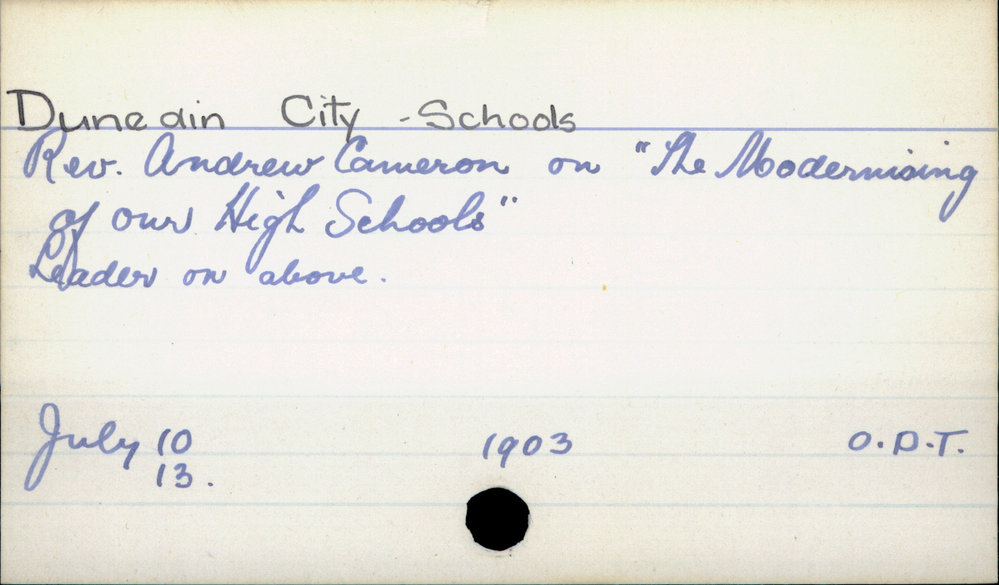 Dunedin City - Schools
Rev. Andrew Cameron on "The Modernising
of our High Schools"
Leader on above.
July 10 1903 O.D.T.
13.